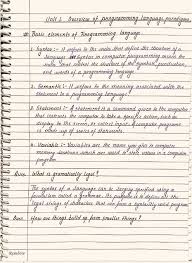 Unit 1 Overview of programming language paradigms
Basic elements of Programming language
1. Syntax :- It refers to the rules that define the structure of a
language. Syntax in computer programming means the
rules that control the structure of the symbols, punctuation,
and words of a programming language.
2. Semantic :- It refers to the meaning associated with the
3. Statement :- A statement is a command given to the computer
that instructs the computer to take a specific action, such as
display to the screen, or collect input. A computer program
is made up of series of statements.
4. Variable :- Variables are the name you give to computer
memory locations which are used to store values in a computer
program.
What is grammatically legal?
The syntax of a language can be specified using
formalism called a grammar. Its purpose is to define all the
legal strings of characters that can form a syntactically valid program.
How are things build up from smaller things?